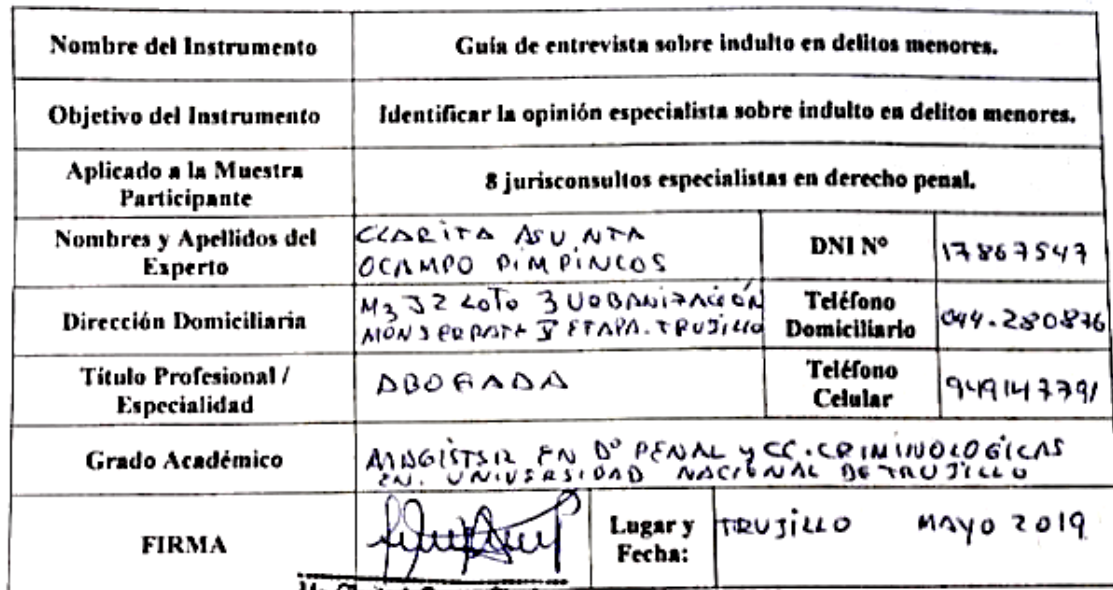 Nombre del Instrumento
Guía de entrevista sobre indulto en delitos menores.
Objetivo del Instrumento
Identificar la opinión especialista sobre indulto en delitos menores.
Aplicado a la Muestra
Participante
8 jurisconsultos especialistas en derecho penal.
Nombres y Apellidos del
Experto
CLARITA ASUNTA
OCAMPO PIMPINCOS
DNI Nº
17867547
Dirección Domiciliaria
Mz J2 LOTO 3 UOBANIZACIÓN
MONSERRATE V ETAPA. TRUJILLO
Teléfono
Domiciliario
044-280876
Título Profesional /
Especialidad
ABOGADA
Teléfono
Celular
949147791
Grado Académico
EN Dº PENAL y CC. CRIMINOLOGICAS
EN. UNIVERSIDAD NACIONAL DE TRUJILLO
FIRMA
Lugar y
Fecha:
TRUJILLO MAYO 2019